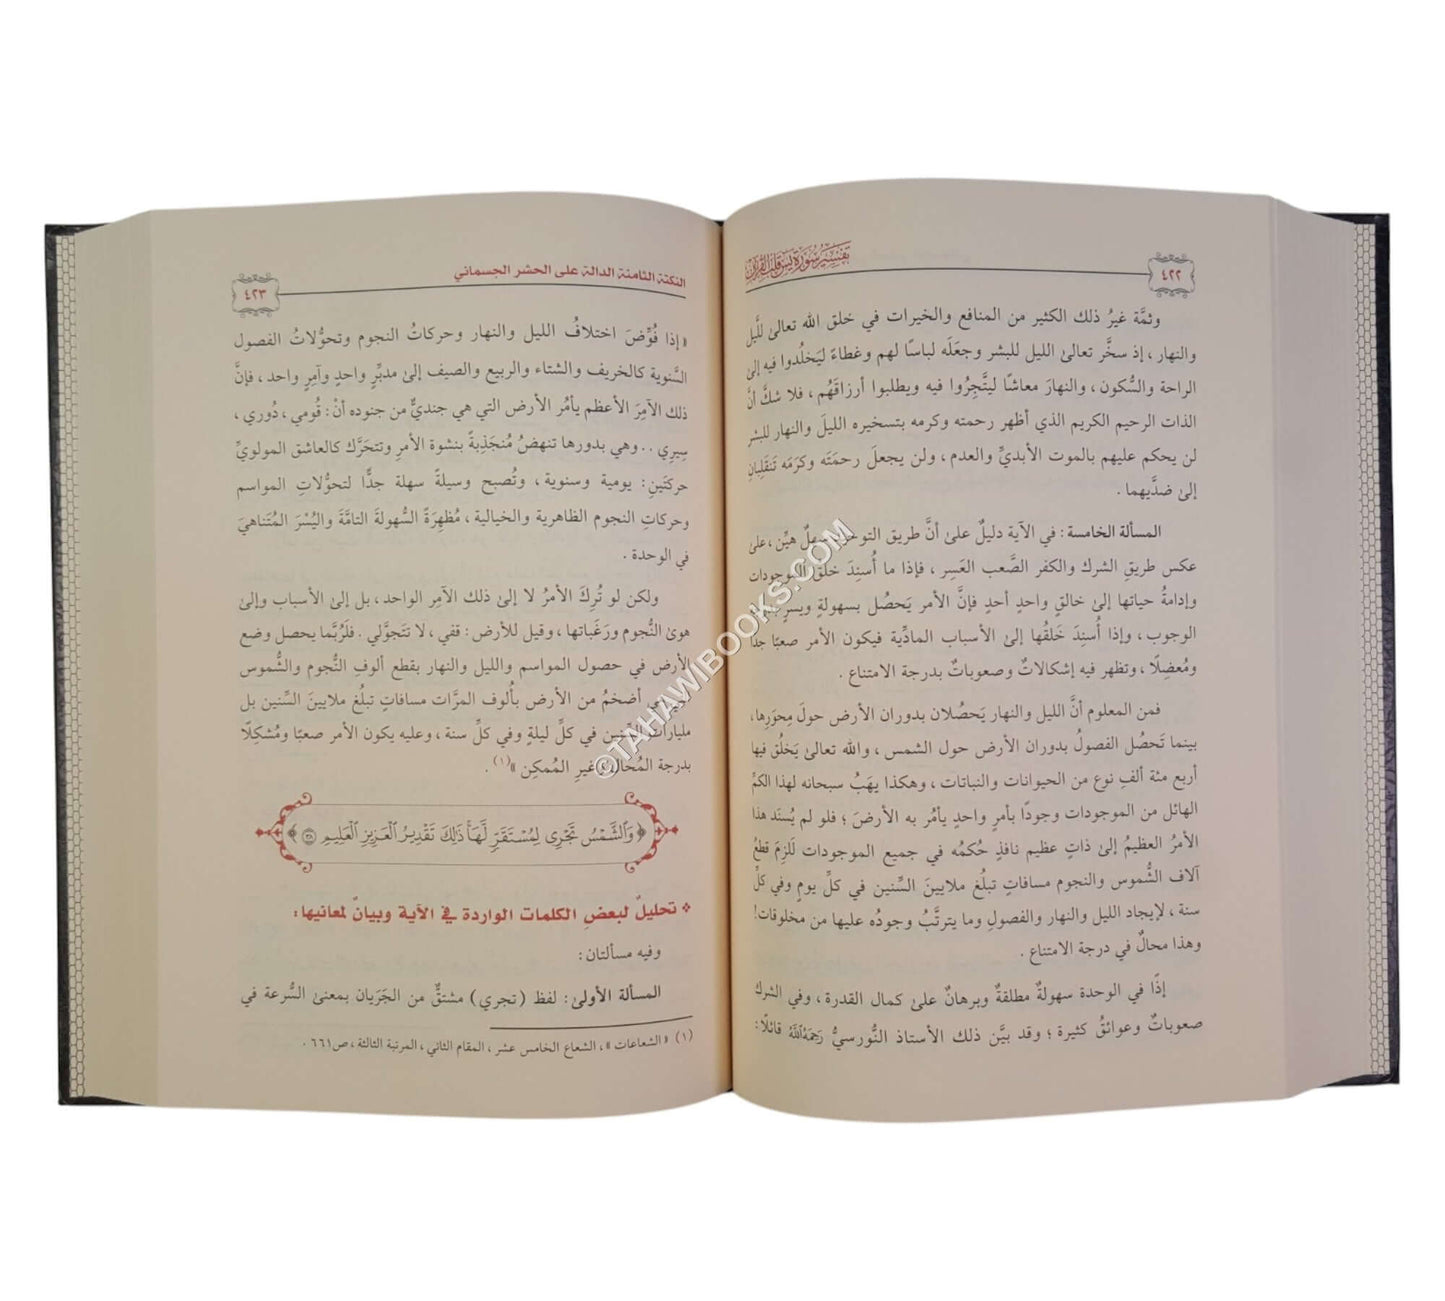 ٤٢٢
تفسير سورة يس قلب القرآن
وثمَّة غيرُ ذلك الكثير من المنافع والخيرات في خلق الله تعالىٰ للَّيل
والنهار ، إذ سخَّر تعالىٰ الليل للبشر وجعَلَه لباسًا لهم وغطاءً ليَخلُدوا فيه إلىٰ
الراحة والسُّكون ، والنهارَ معاشًا ليتَّجِرُوا فيه ويطلبوا أرزاقَهُم ، فلا شكَّ أنَّ
الذات الرحيم الكريم الذي أظهر رحمته وكرمه بتسخيره الليلَ والنهار للبشر
لن يحكم عليهم بالموت الأبديِّ والعدم ، ولن يجعلَ رحمَتَه وكرَمَه تَنقَلِبانِ
إلىٰ ضدَّيهما .
المسألة الخامسة : في الآية دليلٌ علىٰ أنَّ طريق التوحيد سهلٌ هيِّن ، علىٰ
عكس طريقِ الشرك والكفر الصَّعب العَسِر ، فإذا ما أُسنِدَ خلقُ الموجودات
وإدامةُ حياتها إلىٰ خالقٍ واحدٍ أحدٍ فإنَّ الأمر يَحصُل بسهولةٍ ويسرٍ بدرجة
الوجوب ، وإذا أُسنِدَ خَلقُها إلىٰ الأسباب المادِّية فيكون الأمر صعبًا جدًا
ومُعضِلًا ، وتظهر فيه إشكالاتٌ وصعوباتٌ بدرجة الامتناع .
فمن المعلوم أنَّ الليل والنهار يَحصُلان بدوران الأرض حولَ مِحوَرِها ،
بينما تَحصُل الفصولُ بدوران الأرض حول الشمس ، والله تعالىٰ يَخلُق فيها
أربع مئة ألفِ نوع من الحيوانات والنباتات ، وهكذا يهَبُ سبحانه لهذا الكمِّ
الهائل من الموجودات وجودًا بأمرٍ واحدٍ يأمُر به الأرضَ ؛ فلو لم يُسنَد هذا
الأمرُ العظيمُ إلىٰ ذاتٍ عظيم نافذٍ حُكمُه في جميع الموجودات لَلزِمَ قطعُ
آلاف الشُّموس والنجوم مسافاتٍ تبلُغ ملايينَ السِّنين في كلِّ يومٍ وفي كلِّ
سنة ، لإيجاد الليل والنهار والفصولِ وما يترتَّبُ وجودُه عليها من مخلوقات!
وهذا محالٌ في درجة الامتناع .
إذًا في الوحدة سهولةٌ مطلقةٌ وبرهانٌ علىٰ كمال القدرة ، وفي الشرك
صعوباتٌ وعوائقُ كثيرة ؛ وقد بيَّن ذلك الأستاذ النُّورسيُّ رَحِمَهُ اللهُ قائلًا :
النكتة الثامنة الدالة على الحشر الجسماني
٤٢٣
« إذا فُوِّضَ اختلافُ الليل والنهار وحركاتُ النجوم وتحوُّلاتُ الفصول
السَّنوية كالخريف والشتاء والربيع والصيف إلىٰ مدبِّرٍ واحدٍ وآمِرٍ واحد ، فإنَّ
ذلك الآمِرَ الأعظم يأمُر الأرض التي هي جنديٌّ من جنوده أنْ : قُومي ، دُوري ،
سِيرِي . . وهي بدورها تنهضُ مُنجَذِبةً بنشوة الأمرِ وتتحَرَّك كالعاشق المولويِّ
حركتَينِ : يومية وسنوية ، وتُصبح وسيلةً سهلة جدًّا لتحوُّلات المواسم
وحركاتِ النجوم الظاهرية والخيالية ، مُظهِرَةً السُّهولةَ التامَّةَ واليُسْرَ المُتَناهيَ
في الوحدة .
ولكن لو تُرِكَ الأمرُ لا إلىٰ ذلك الآمِر الواحد ، بل إلىٰ الأسباب وإلىٰ
هوىٰ النُّجوم ورَغَباتها ، وقيل للأرض : قفي ، لا تَتَجوَّلي . فلَرُبَّما يحصل وضع
الأرض في حصول المواسم والليل والنهار بقطع ألوفِ النُّجوم والشُّموس
التي هي أضخمُ من الأرض بأُلوف المرَّات مسافاتٍ تبلُغ ملايينَ السِّنين بل
مليارات السِّنين في كلِّ ليلةٍ وفي كلِّ سنة ، وعليه يكون الأمر صعبًا ومُشكِلًا
بدرجة المُحال وغيرِ المُمكِن »(١) .
﴿ وَٱلشَّمْسُ تَجْرِى لِمُسْتَقَرٍّ لَّهَا ۚ ذَٰلِكَ تَقْدِيرُ ٱلْعَزِيزِ ٱلْعَلِيمِ ٣٨ ﴾
* تحليلٌ لبعضِ الكلمات الواردة في الآية وبيانٌ لمعانيها :
وفيه مسألتان :
المسألة الأولىٰ : لفظ (تجري) مشتقٌّ من الجَرَيان بمعنىٰ السُّرعة في
(١) « الشعاعات » ، الشعاع الخامس عشر ، المقام الثاني ، المرتبة الثالثة ، ص٦٦١ .
©TAHAWIBOOKS.COM